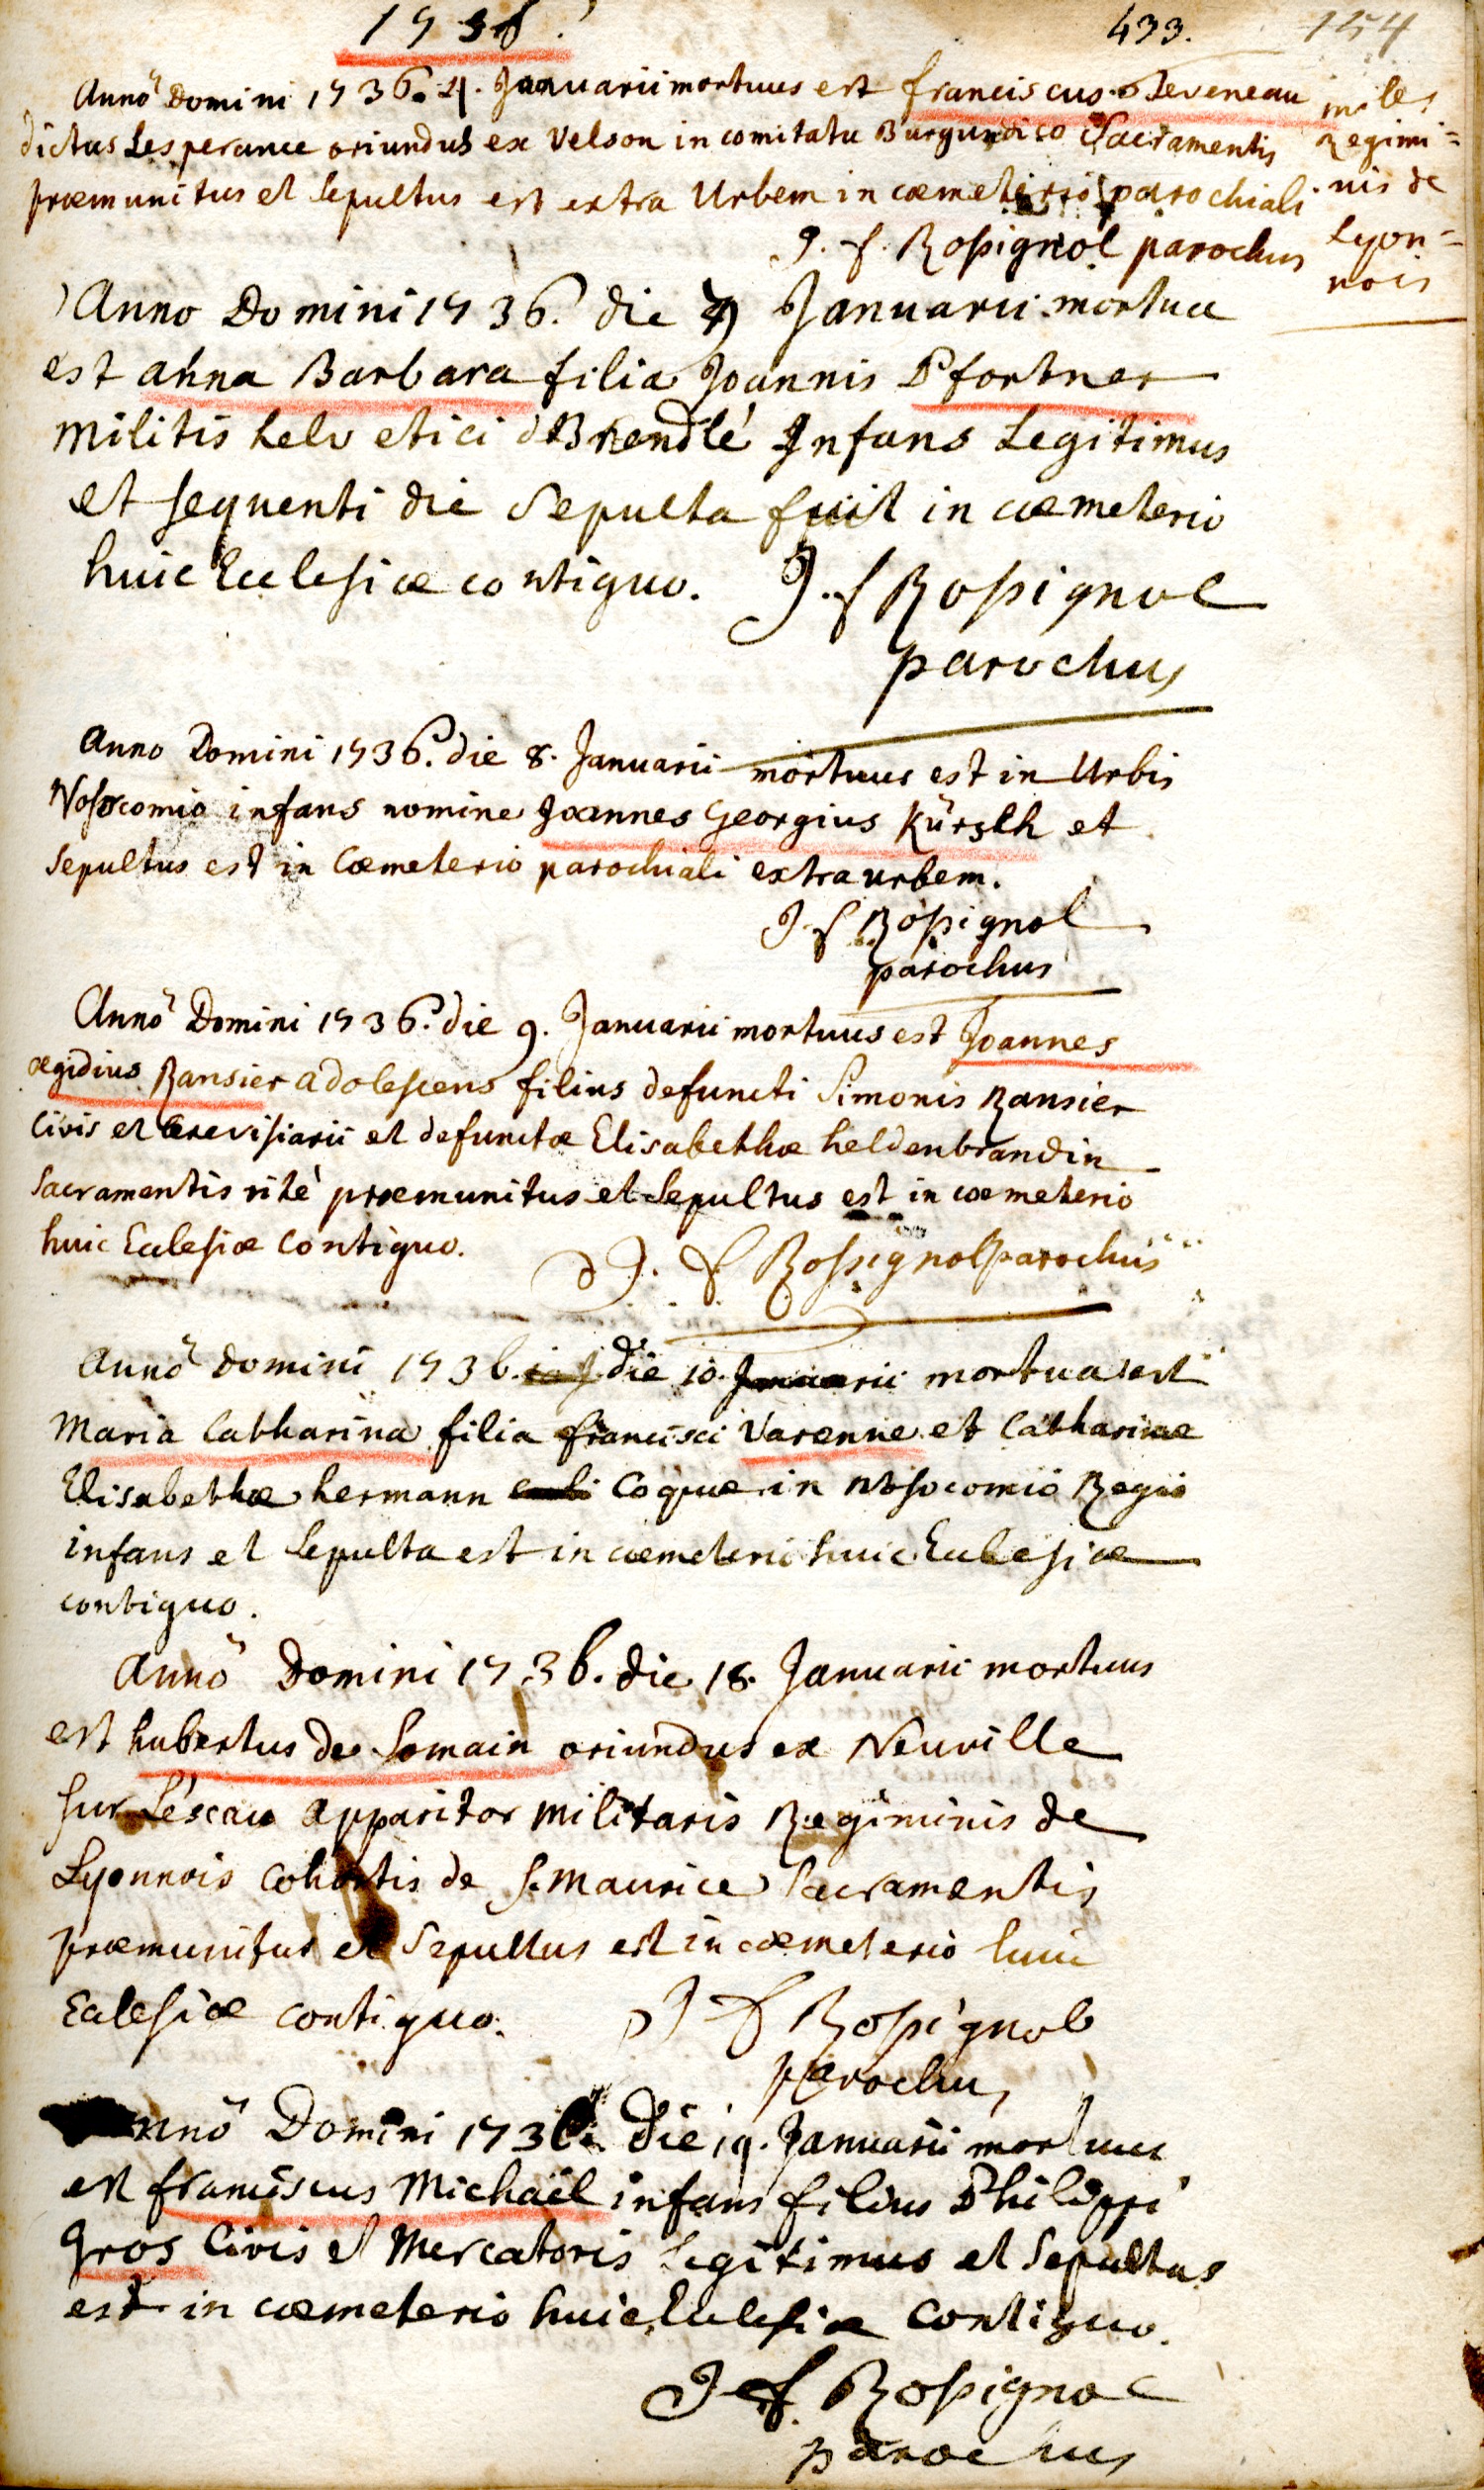 1736. 433. 154
Anno Domini 1736. 4. Januarii mortuus est franciscus Teveneau miles
dictus Lesperance oriundus ex Velson in comitatu Burgundico Sacramentis Regimi=
præmunitus et sepultus est extra Urbem in cœmeterio parochiali. nis de
J. f. Rossignol parochus Lyon=
nois
Anno Domini 1736. die 7 Januarii mortua
est anna Barbara filia Joannis Pfortner
militis helvetici d Brendlé Infans Legitimus
et sequenti die Sepulta fuit in cœmeterio
huic Ecclesiæ contiguo. J. f Rossignol
parochus
Anno Domini 1736. die 8. Januarii mortuus est in Urbis
Nosocomio infans nomine Joannes Georgius Kürslh et
Sepultus est in Cœmeterio parochiali extra urbem.
J f Rossignol
parochus
Anno Domini 1736. die 9. Januarii mortuus est Joannes
ægidius Ransier adolescens filius defuncti Simonis Ransier
Civis et Cerevisiarii et defunctæ Elisabethæ heldenbrandin
Sacramentis ritè præmunitus et Sepultus est in cœmeterio
huic Ecclesiæ Contiguo. J. f Rossignol parochus
Anno Domini 1736. die 10. Januarii mortua est
Maria Catharina filia francisci Varenne et Catharinæ
Elisabethæ hermann Coquæ in Nosocomio Regio
infans et Sepulta est in cœmeterio huic Ecclesiæ
contiguo.
Anno Domini 1736. die 18. Januarii mortuus
est hubertus de Somain oriundus ex Neuville
sur Léscau apparitor militaris Regiminis de
Lyonnois Cohortis de S. Maurice Sacramentis
præmunitus et Sepultus est in cœmeterio huic
Ecclesiæ contiguo. J f Rossignol
parochus
Anno Domini 1736. Die 19. Januarii mortuus
est franciscus Michaël infans filius Philippi
Gros Civis et Mercatoris Legitimus et Sepultus
est in cœmeterio huic Ecclesiæ Contiguo.
J f Rossignol
parochus